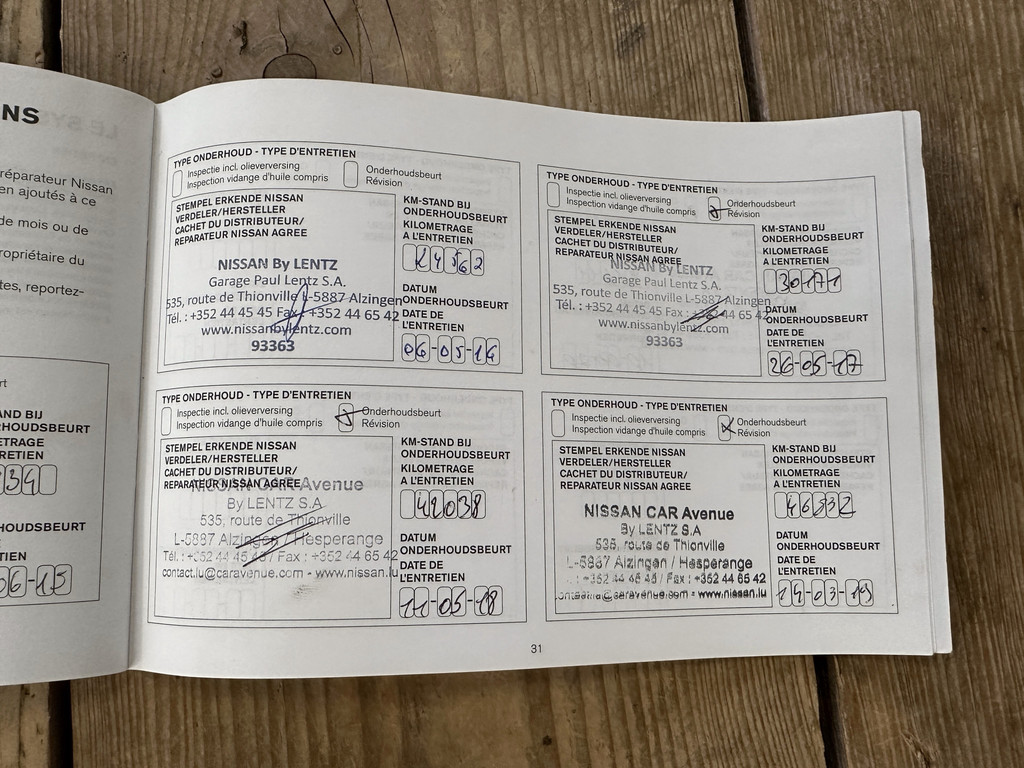 NS
réparateur Nissan
en ajoutés à ce
de mois ou de
propriétaire du
tes, reportez-
rt
AND BIJ
RHOUDSBEURT
ETRAGE
RETIEN
HOUDSBEURT
TIEN
06-15
TYPE ONDERHOUD - TYPE D'ENTRETIEN
Inspectie incl. olieverversing
Inspection vidange d'huile compris
Onderhoudsbeurt
Révision
STEMPEL ERKENDE NISSAN
VERDELER/HERSTELLER
CACHET DU DISTRIBUTEUR/
REPARATEUR NISSAN AGREE
NISSAN By LENTZ
Garage Paul Lentz S.A.
535, route de Thionville L-5887 Alzingen
Tél. : +352 44 45 45 Fax : +352 44 65 42
www.nissanbylentz.com
93363
KM-STAND BIJ
ONDERHOUDSBEURT
KILOMETRAGE
A L'ENTRETIEN
24562
DATUM
ONDERHOUDSBEURT
DATE DE
L'ENTRETIEN
06-05-16
TYPE ONDERHOUD - TYPE D'ENTRETIEN
Inspectie incl. olieverversing
Inspection vidange d'huile compris
Onderhoudsbeurt
Révision
STEMPEL ERKENDE NISSAN
VERDELER/HERSTELLER
CACHET DU DISTRIBUTEUR/
REPARATEUR NISSAN AGREE
NISSAN By LENTZ
Garage Paul Lentz S.A.
535, route de Thionville L-5887 Alzingen
Tél. : +352 44 45 45 Fax : +352 44 65 42
www.nissanbylentz.com
93363
KM-STAND BIJ
ONDERHOUDSBEURT
KILOMETRAGE
A L'ENTRETIEN
30171
DATUM
ONDERHOUDSBEURT
DATE DE
L'ENTRETIEN
26-05-17
TYPE ONDERHOUD - TYPE D'ENTRETIEN
Inspectie incl. olieverversing
Inspection vidange d'huile compris
Onderhoudsbeurt
Révision
STEMPEL ERKENDE NISSAN
VERDELER/HERSTELLER
CACHET DU DISTRIBUTEUR/
REPARATEUR NISSAN AGREE
NISSAN CAR Avenue
By LENTZ S.A
535, route de Thionville
L-5887 Alzingen / Hesperange
Tél. : +352 44 45 45 / Fax : +352 44 65 42
contact.lu@caravenue.com - www.nissan.lu
KM-STAND BIJ
ONDERHOUDSBEURT
KILOMETRAGE
A L'ENTRETIEN
42038
DATUM
ONDERHOUDSBEURT
DATE DE
L'ENTRETIEN
11-05-18
TYPE ONDERHOUD - TYPE D'ENTRETIEN
Inspectie incl. olieverversing
Inspection vidange d'huile compris
Onderhoudsbeurt
Révision
STEMPEL ERKENDE NISSAN
VERDELER/HERSTELLER
CACHET DU DISTRIBUTEUR/
REPARATEUR NISSAN AGREE
NISSAN CAR Avenue
By LENTZ S.A
535, route de Thionville
L-5887 Alzingen / Hesperange
: +352 44 45 45 / Fax : +352 44 65 42
@caravenue.com - www.nissan.lu
KM-STAND BIJ
ONDERHOUDSBEURT
KILOMETRAGE
A L'ENTRETIEN
46332
DATUM
ONDERHOUDSBEURT
DATE DE
L'ENTRETIEN
14-03-19
31